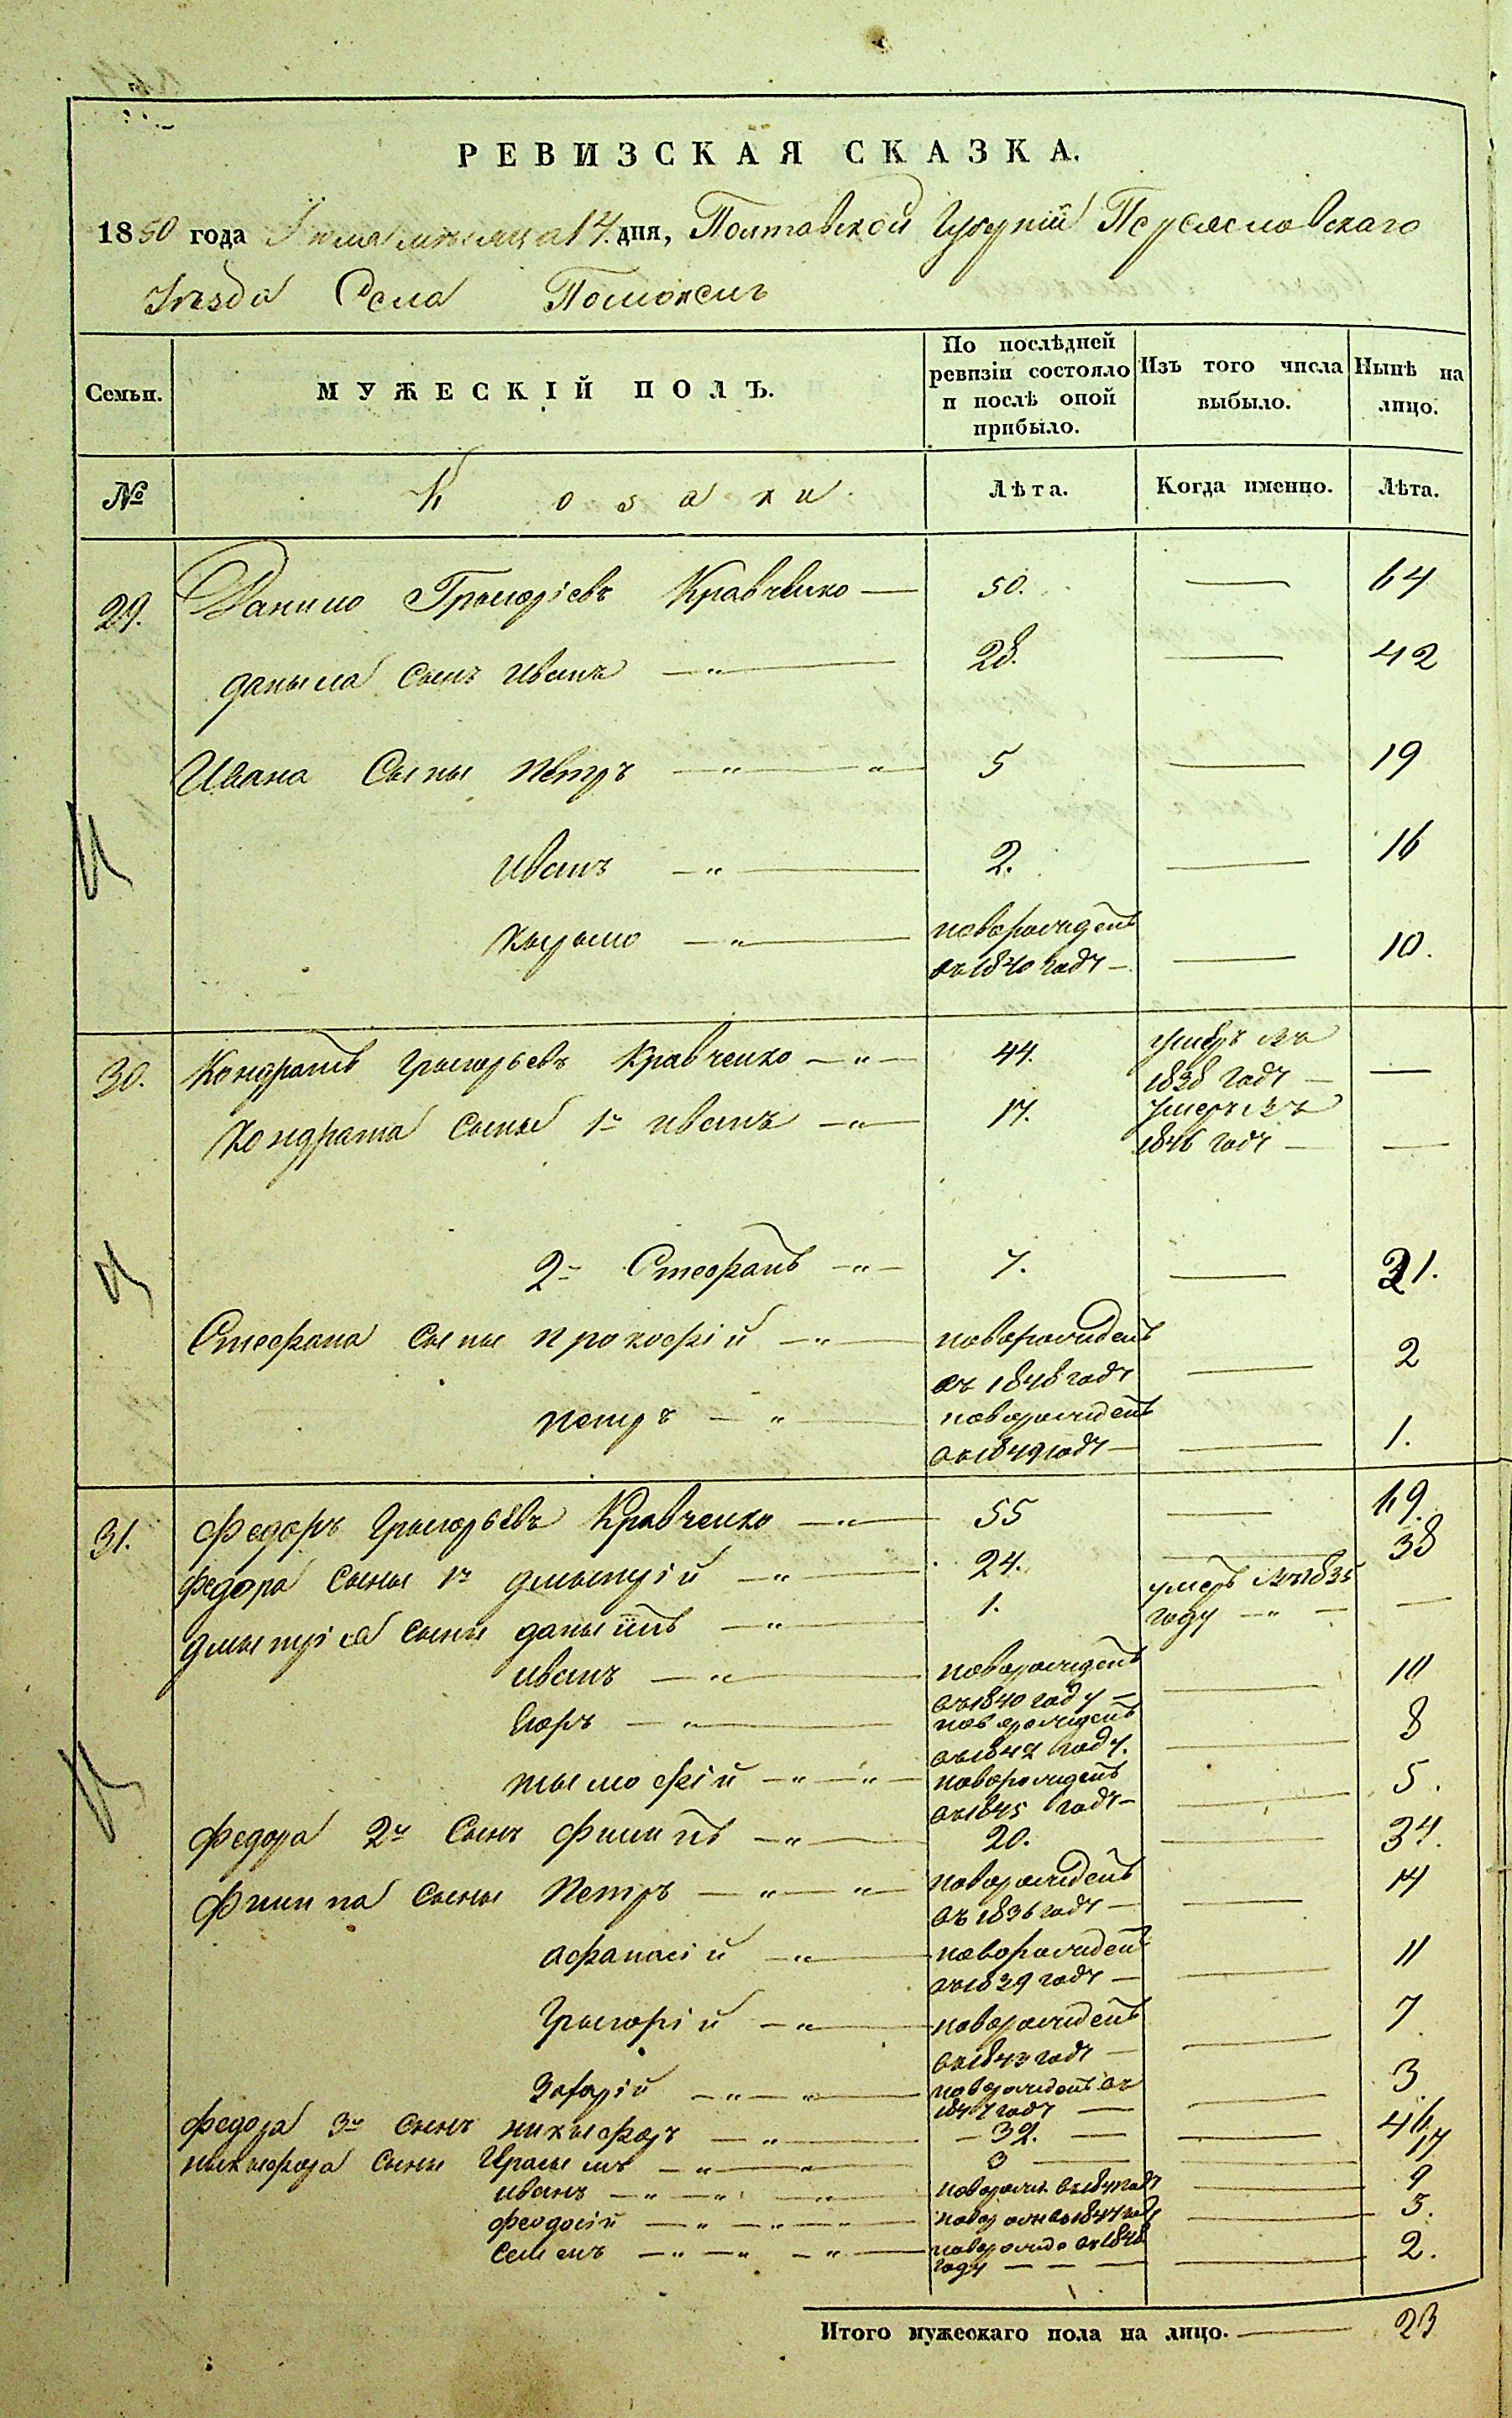 РЕВИЗСКАЯ СКАЗКА.
1850 года мѣсяца 14. дня, Полтавской Губернии Переяславскаго
уезда Села Помоклъ
Семьи. МУЖЕСКІЙ ПОЛЪ. По послѣдней ревизіи состояло и послѣ оной прибыло. Изъ того числа выбыло. Нынѣ на лицо.
№ Козаки Лѣта. Когда именно. Лѣта.
29. Данило Григоріевъ Кравченко — 50. — 64
данила сынъ иванъ — " — 28. — 42
Ивана Сыны петръ — " — " 5 — 19
иванъ — " — 2. — 16
кырыло — " — новорожденъ
въ 1840 году — — 10.
30. Кондратъ григорьевъ Кравченко — " — 44. умеръ въ
1838 годУ — —
Кондрата сыны 1й иванъ — " — 17. умеръ въ
1846 годУ — —
2й Стефанъ — " — 7. — 21.
Стефана сыны прокофій — " — новорожденъ
въ 1848 годУ — 2
петръ — " — новорожденъ
въ 1849 годУ — — 1.
31. федоръ григорьевъ Кравченко — " — 55 — 69.
федора сыны 1й дмытрій — " — 24. — 38
дмытрія сыны даныилъ — " — 1. умеръ въ 1835
году — " — —
иванъ — " — новорожденъ
въ 1840 году — — 10
Егоръ — " — новорожденъ
въ 1842 году. — 8
тымофій — " — " — новорожденъ
въ 1845 годУ — — 5.
федора 2й сынъ филипъ — " — 20. — 34.
филипа сыны петръ — " — " — новорожденъ
въ 1836 годУ — — 14
афанасій — " — новорожденъ
въ 1839 годУ — — 11
григорій — " — новорожденъ
въ 1843 годУ — — 7
Захарій — " — " — новорожденъ въ
1847 годУ — — 3
федора 3й сынъ никыфоръ — " — — 32. — — 46
ныкыфора сыны — " — " — 3 — — 17
иванъ — " — " — " — новорожд въ 1841 годУ — 9
феодосій — " — " — " — новорожд въ 184 году — 5.
семенъ — " — " — " — новорожде въ 1848
году — — — — 2.
Итого мужескаго пола на лицо. — 23